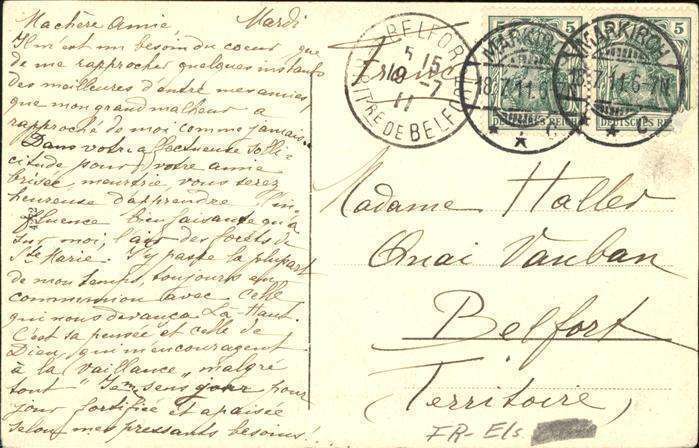 Ma chère Amie, Mardi
Il m'est un besoin du coeur que
de me rapprocher quelques instants
des meilleures d'entre mes amies,
que mon grand malheur a
rapproché de moi comme jamais.
Dans votre affectueuse solli-
citude pour votre amie
brisée, meurtrie, vous serez
heureuse d'apprendre l'in-
fluence bienfaisante qu'a
sur moi, l'air des forêts de
Ste Marie. J'y passe la plupart
de mon temps, toujours en
communion avec Celle
qui nous devança Là-Haut.
C'est sa pensée et celle de
Dieu, qui m'encouragent
à la vaillance "malgré
tout" Je me sens jour pour
jour fortifiée et apaisée
selon mes pressants besoins!
BELFORT
5 15
19 - 7
11
TERRITRE DE BELFORT
France
5 5
MARKIRCH
18.7.11.6-7N
* * c
DEUTSCHES REICH
MARKIRCH
18.7.11.6-7N
* * c
DEUTSCHES RE
Madame Haller
Quai Vauban
Belfort
(Territoire)
FR-Els